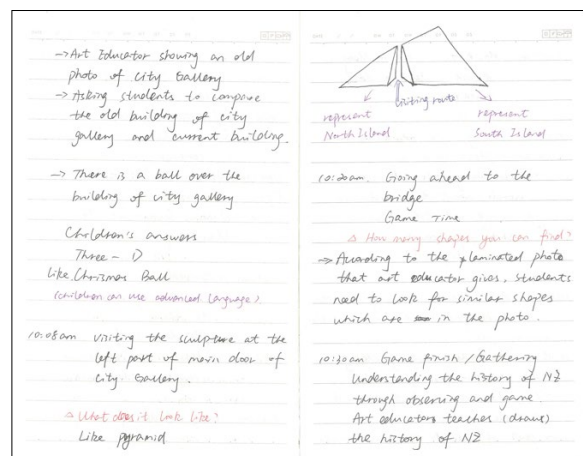 →Art Educator showing an old
photo of City Gallery
→ Asking students to compare
the old building of city
gallery and current building.
→ There is a ball over the
building of city gallery
Children's answers
Three - D
like Chrismas Ball
(children can use advanced language)
10:08am visiting the sculpture at the
left part of main door of
city Gallery.
△ What does it look like?
Like pyramid
visiting route
represent
North Island
represent
South Island
10:20am Going ahead to the
bridge
Game Time
△ How many shapes you can find?
→ According to the plaminated photo
that art educator gives, students
need to look for similar shapes
which are in the photo.
10:30am Game finish / Gathering
Understanding the history of NZ
through observing and game
Art educators teaches (draws)
the history of NZ